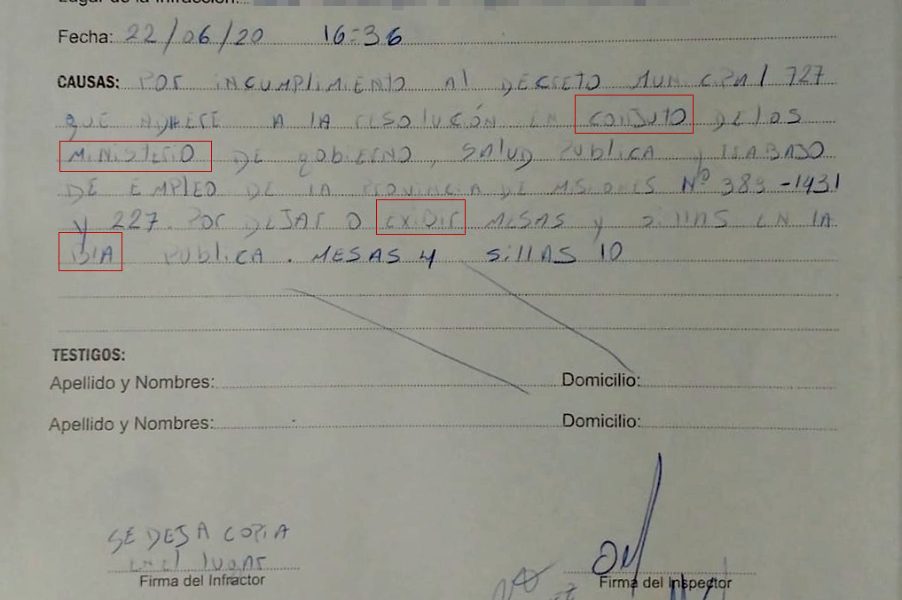 Lugar de la Infracción:
Fecha: 22/06/20 16:36
CAUSAS: POR INCUMPLIMIENTO Al DECRETO MUNICIPAl 727
QUE ADHERE A lA RESOLUCIÓN EN CONJUTO DE lOS
MINISTERIO DE GObIERNO, SALUD PUBLICA Y TRABAJO
DE EMPLEO DE LA PROVINCIA DE MISIONES Nº 383-1431
y 227. POR DEJAR O EXIDIR MESAS y SillAS EN lA
BIA PUblICA. MESAS 4 SillAS 10
TESTIGOS:
Apellido y Nombres: Domicilio:
Apellido y Nombres: Domicilio:
SE DEJA COPIA
EN El lUGAR
Firma del Infractor Firma del Inspector